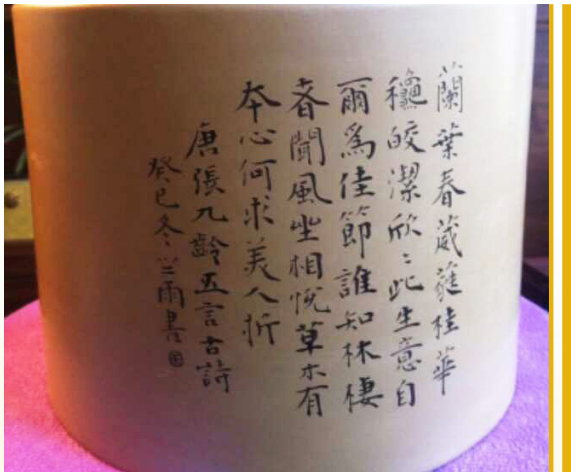 蘭葉春葳蕤桂華
龝皎潔欣〻此生意自
爾爲佳節誰知林棲
者聞風坐相悅草木有
本心何求美人折
唐張九齡五言古詩
癸巳冬兰雨書